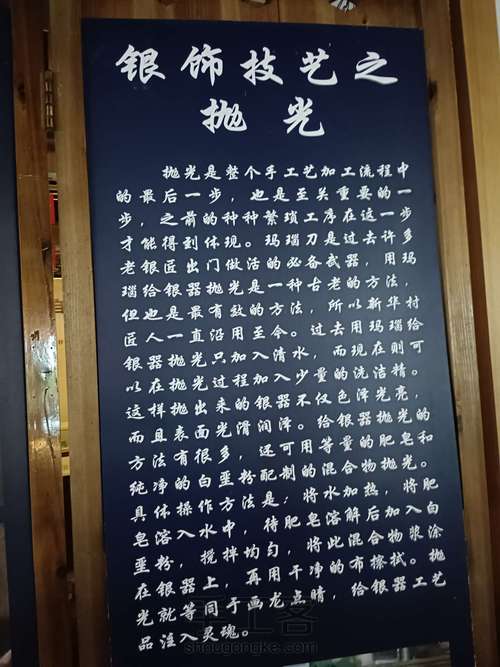 银饰技艺之
抛光
抛光是整个手工艺加工流程中
的最后一步，也是至关重要的一
步，之前的种种繁琐工序在这一步
才能得到体现。玛瑙刀是过去许多
老银匠出门做活的必各武器，用玛
瑙给银器抛光是一种古老的方法，
但也是最有效的方法，所以新华村
匠人一直沿用至今。过去用玛瑙给
银器抛光只加入清水，而现在则可
以在抛光过程加入少量的洗洁精。
这样抛出来的银器不仅色泽光亮，
而且表面光滑润泽。给银器抛光的
方法有很多，还可用等量的肥皂和
纯净的白垩粉配制的混合物抛光。
具体操作方法是：将水加热，将肥
皂溶入水中，待肥皂溶解后加入白
垩粉，搅拌均匀，将此混合物浆涂
在银器上，再用干净的布擦拭。抛
光就等同于画龙点睛，给银器工艺
品注入灵魂。
手工客
shougongke.com